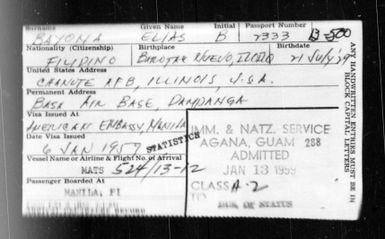 Surname Given Name Initial Passport Number
BAYOMA ELIAS B 7333 B-500
Nationality (Citizenship) Birthplace Birthdate
FILIPINO NUEVO, ILOILO 21 July '29
United States Address
CHANUTE AFB, ILLINOIS, U.S.A.
Permanent Address
BASA AIR BASE, PAMPANGA
Visa Issued At
AMERICAN EMBASSY, MANILA
Date Visa Issued
6 JAN 1959
STATISTICS
Vessel Name or Airline & Flight No. of Arrival
MATS 524/13-12
Passenger Boarded at
MANILA, PI
IMM. & NATZ. SERVICE
AGANA, GUAM 288
ADMITTED
JAN 13 1959
CLASS A-2
TO
DUR. OF STATUS
ANY HANDWRITTEN ENTRIES MUST BE IN
BLOCK CAPITAL LETTERS